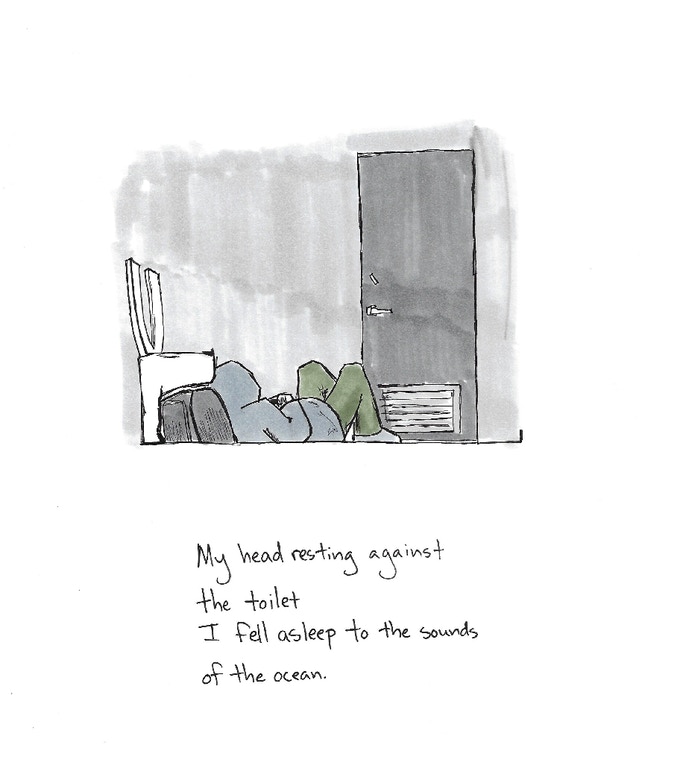 My head resting against
the toilet
I fell asleep to the sounds
of the ocean.